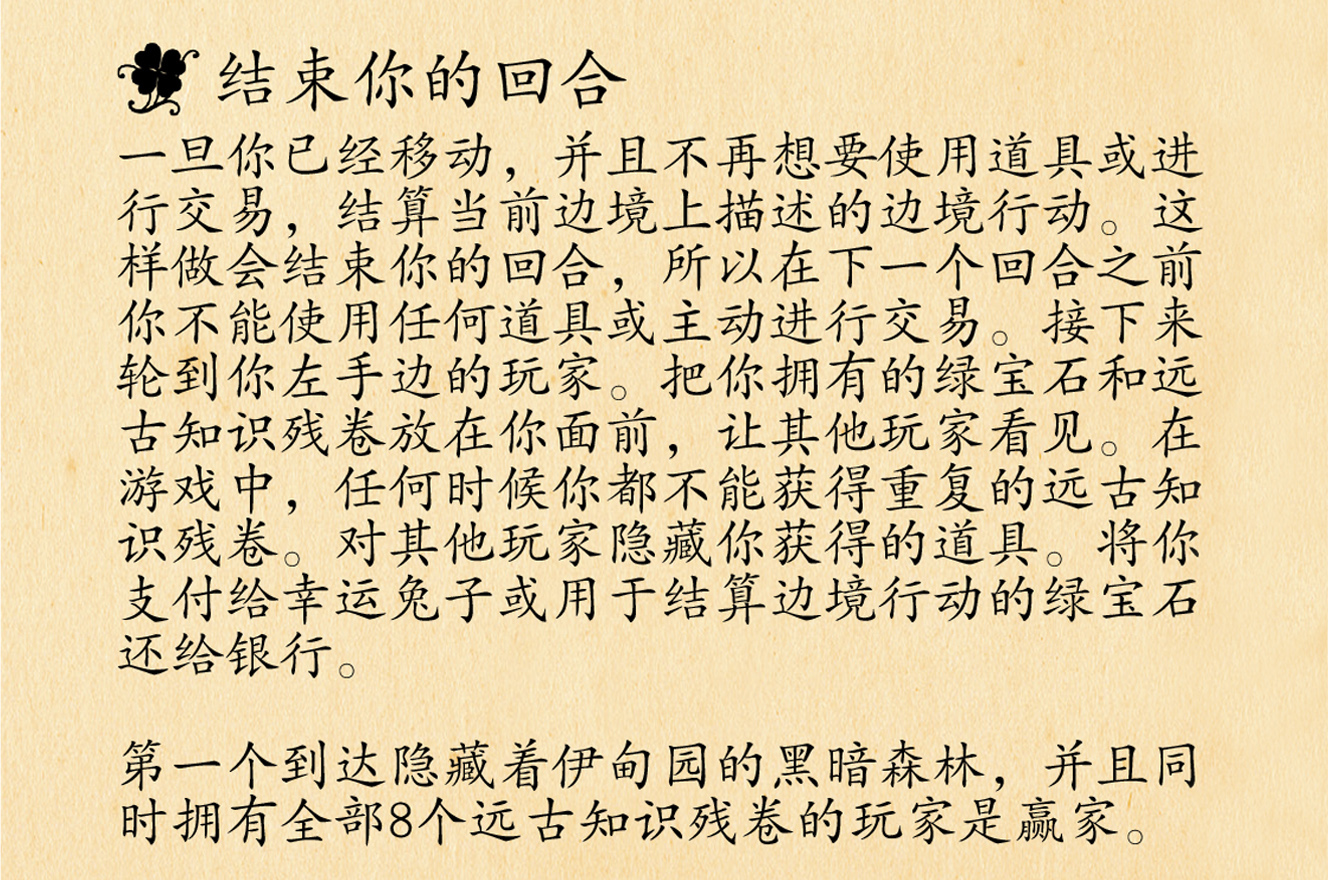 结束你的回合
一旦你已经移动，并且不再想要使用道具或进
行交易，结算当前边境上描述的边境行动。这
样做会结束你的回合，所以在下一个回合之前
你不能使用任何道具或主动进行交易。接下来
轮到你左手边的玩家。把你拥有的绿宝石和远
古知识残卷放在你面前，让其他玩家看见。在
游戏中，任何时候你都不能获得重复的远古知
识残卷。对其他玩家隐藏你获得的道具。将你
支付给幸运兔子或用于结算边境行动的绿宝石
还给银行。
第一个到达隐藏着伊甸园的黑暗森林，并且同
时拥有全部8个远古知识残卷的玩家是赢家。